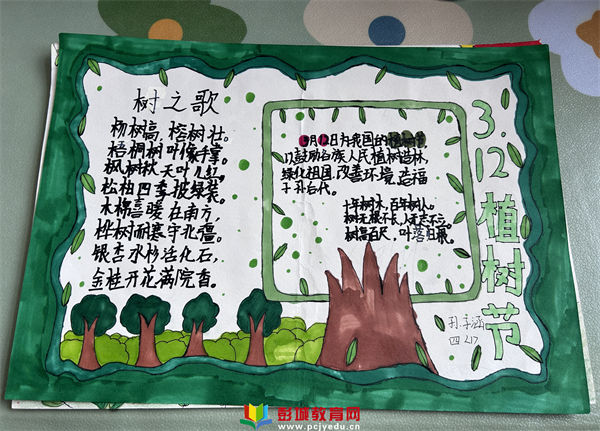 树之歌
杨树高，榕树壮。
梧桐树叶像手掌。
枫树秋天叶儿红。
松柏四季披绿装。
木棉喜暖在南方，
桦树耐寒守北疆。
银杏水杉活化石，
金桂开花满院香。
3月12日为我国的植树节
以鼓励各族人民植树造林，
绿化祖国，改善环境，造福
子孙后代。
十年树木，百年树人。
树无根不长，人无志不立。
树高百尺，叶落归根。
3.12植树节
四
彭城教育网
www.pcjyedu.cn